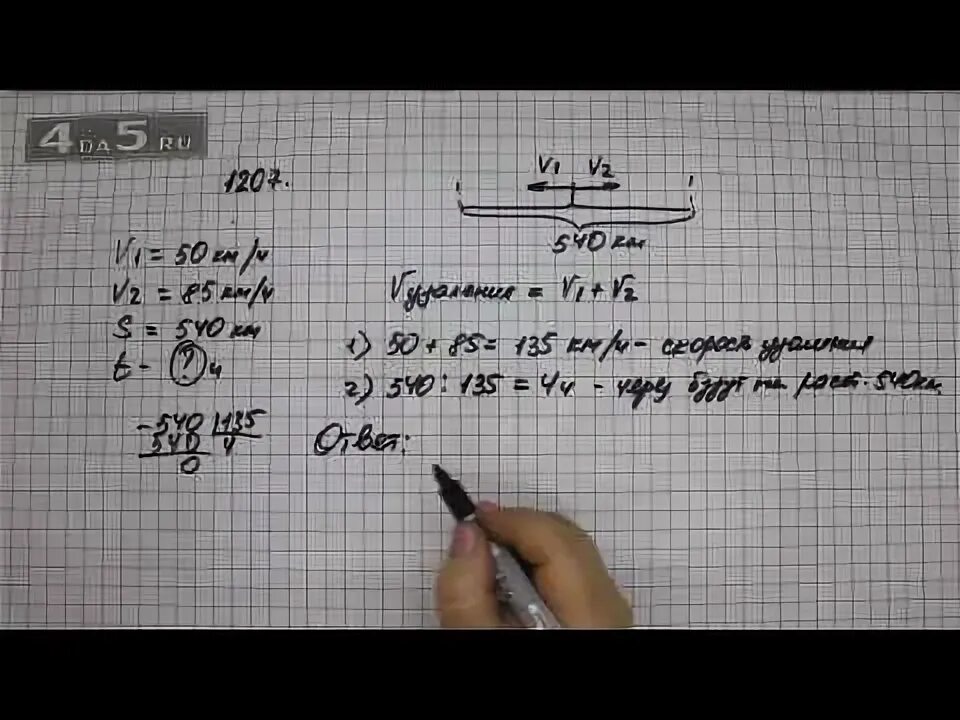 4 DA 5 RU
1207.
V1 V2
540 км
V1 = 50 км/ч
V2 = 85 км/ч
S = 540 км
t - ? ч
Vудаления = V1 + V2
1) 50 + 85 = 135 км/ч - скорость удаления
2) 540 : 135 = 4ч - через будут на раст. 540км
- 540 135
540 4
0
Ответ: